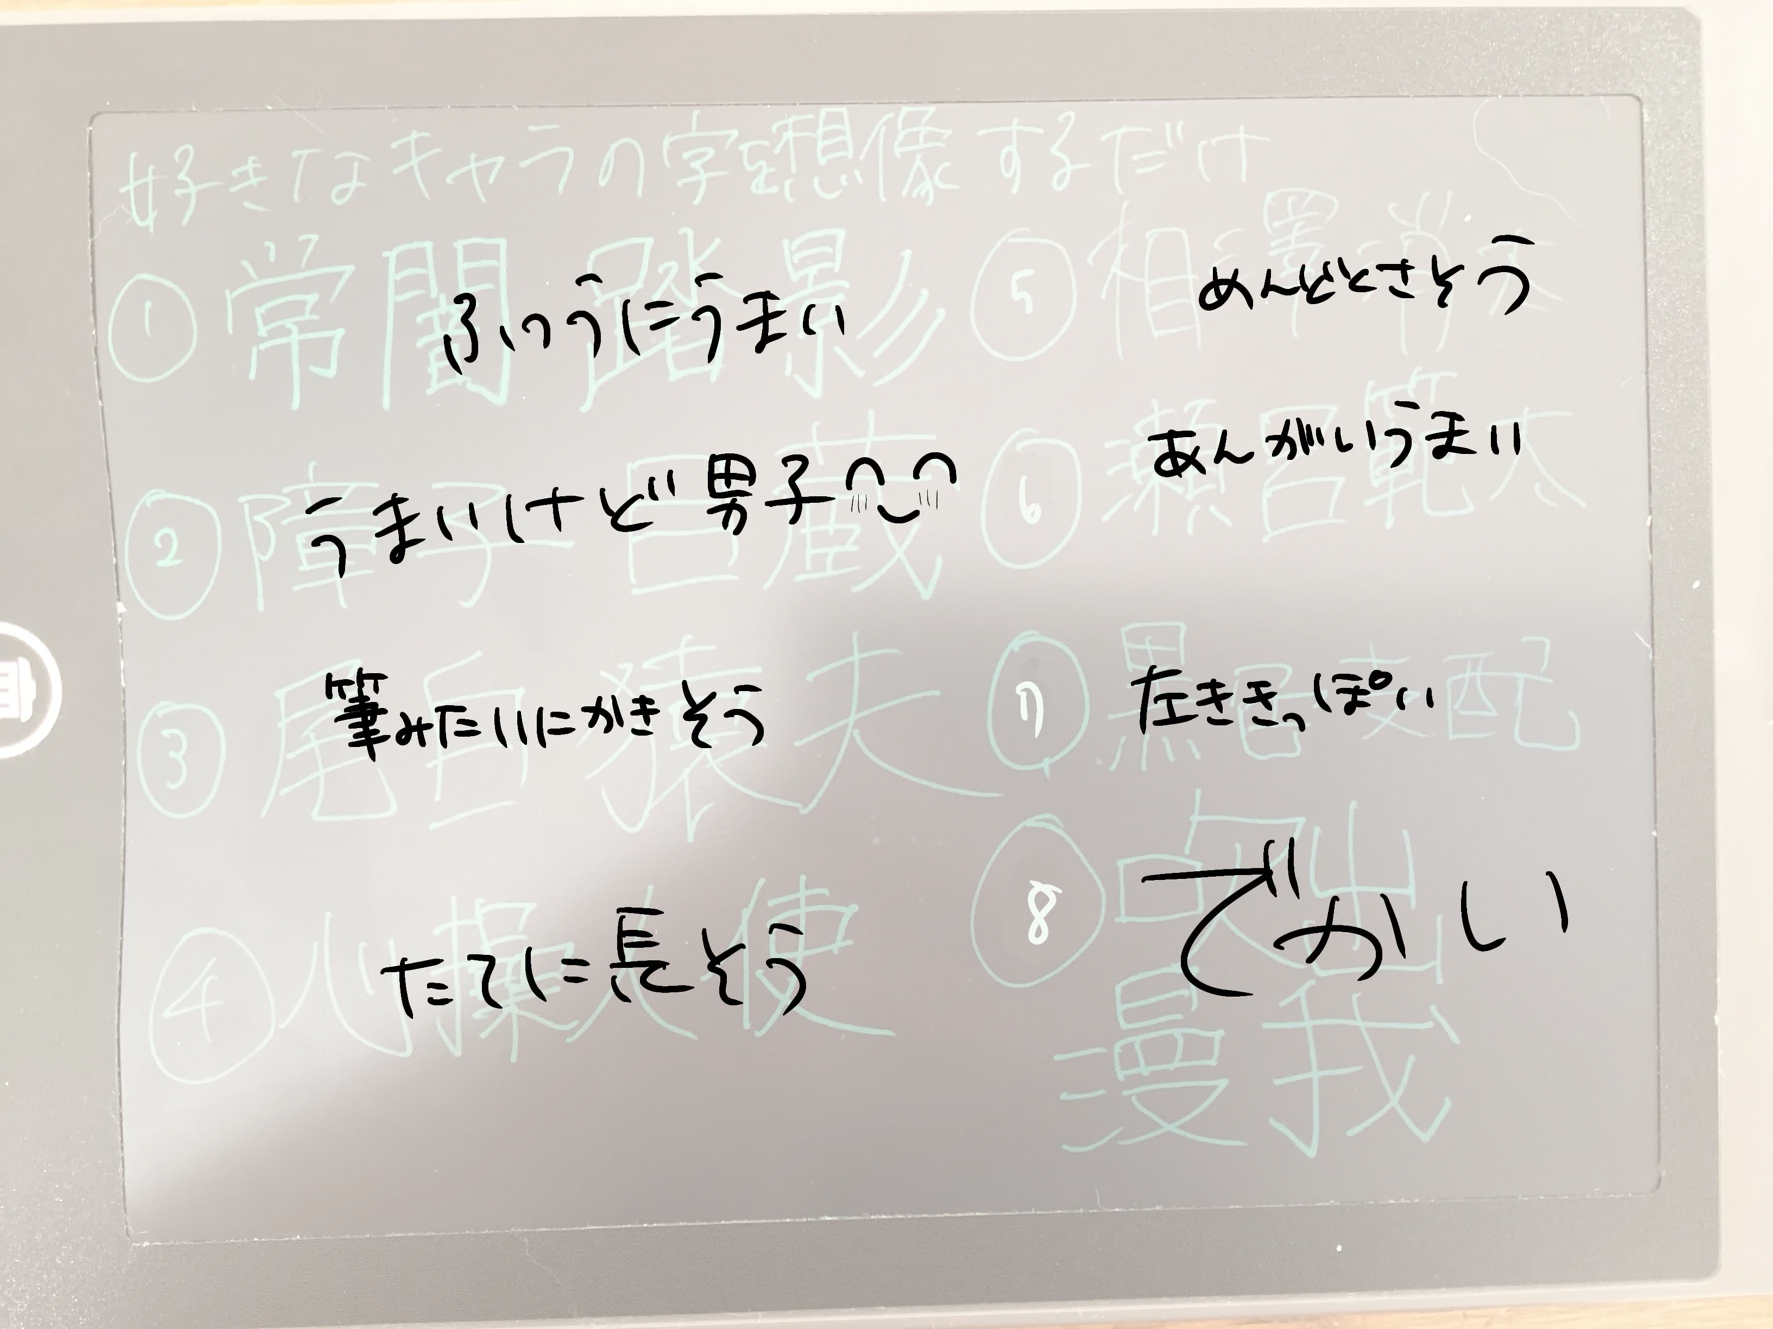 好きなキャラの字を想像するだけ
① 常闇踏影
ふつうにうまい
② 障子目蔵
うまいけど男子
③ 尾白猿夫
筆みたいにかきそう
④ 心操人使
たてに長そう
⑤ 相澤消太
めんどくさそう
⑥ 瀬呂範太
あんがいうまい
⑦ 黒色支配
左ききっぽい
⑧ 吹出
漫我
でかい